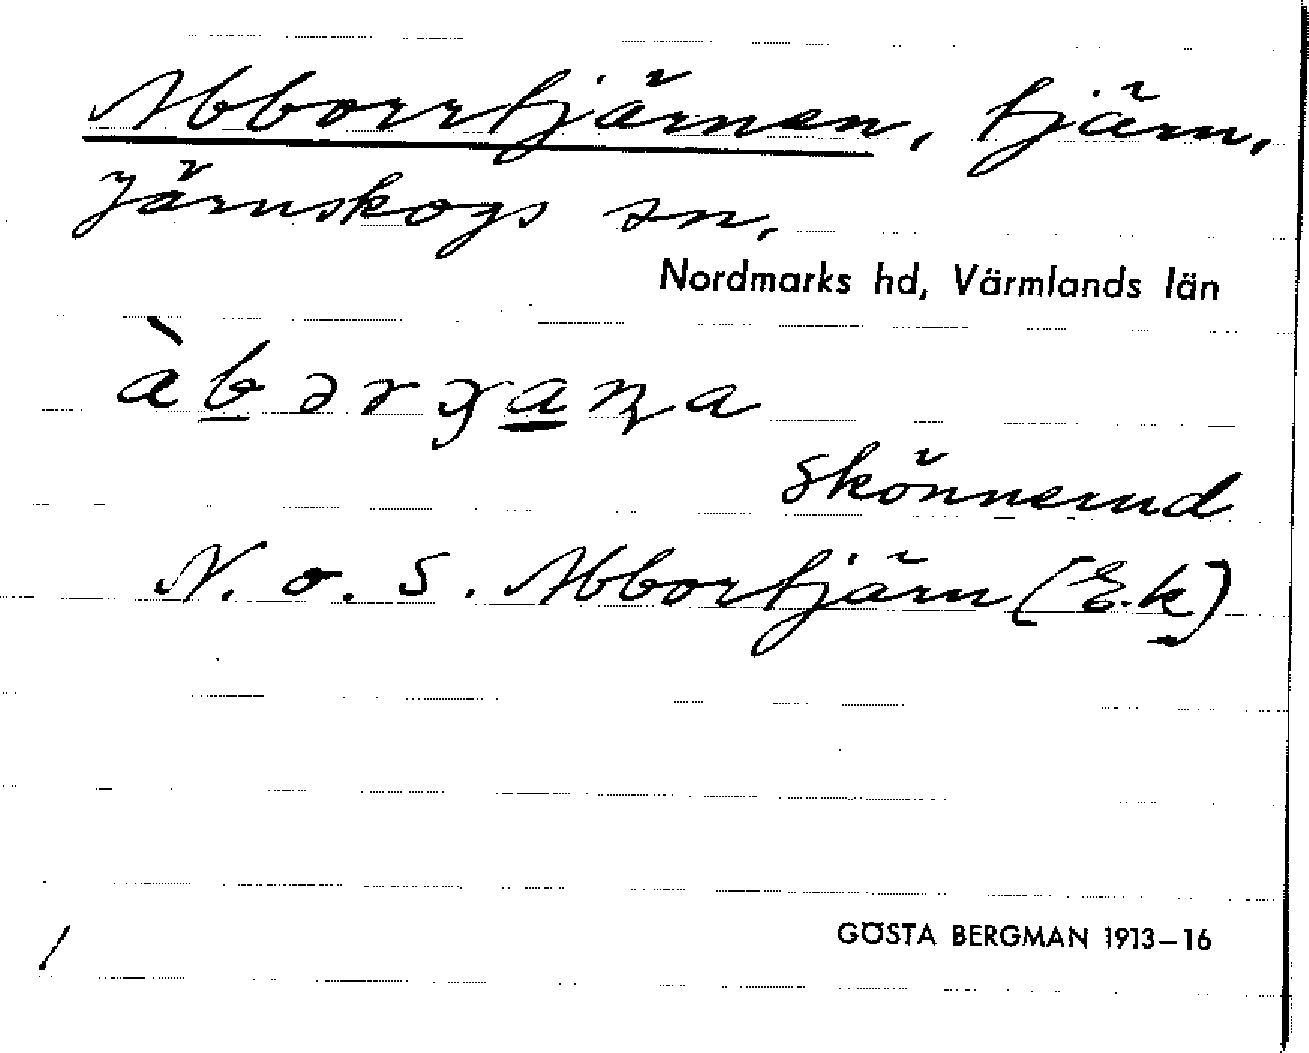 Abborrtjärnen, tjärn,
Järnskogs sn,
Nordmarks hd, Värmlands län
àbərɣaɳa
Skönnerud
N. o. S. Abbortjärn (E.k)
/
GÖSTA BERGMAN 1913–16